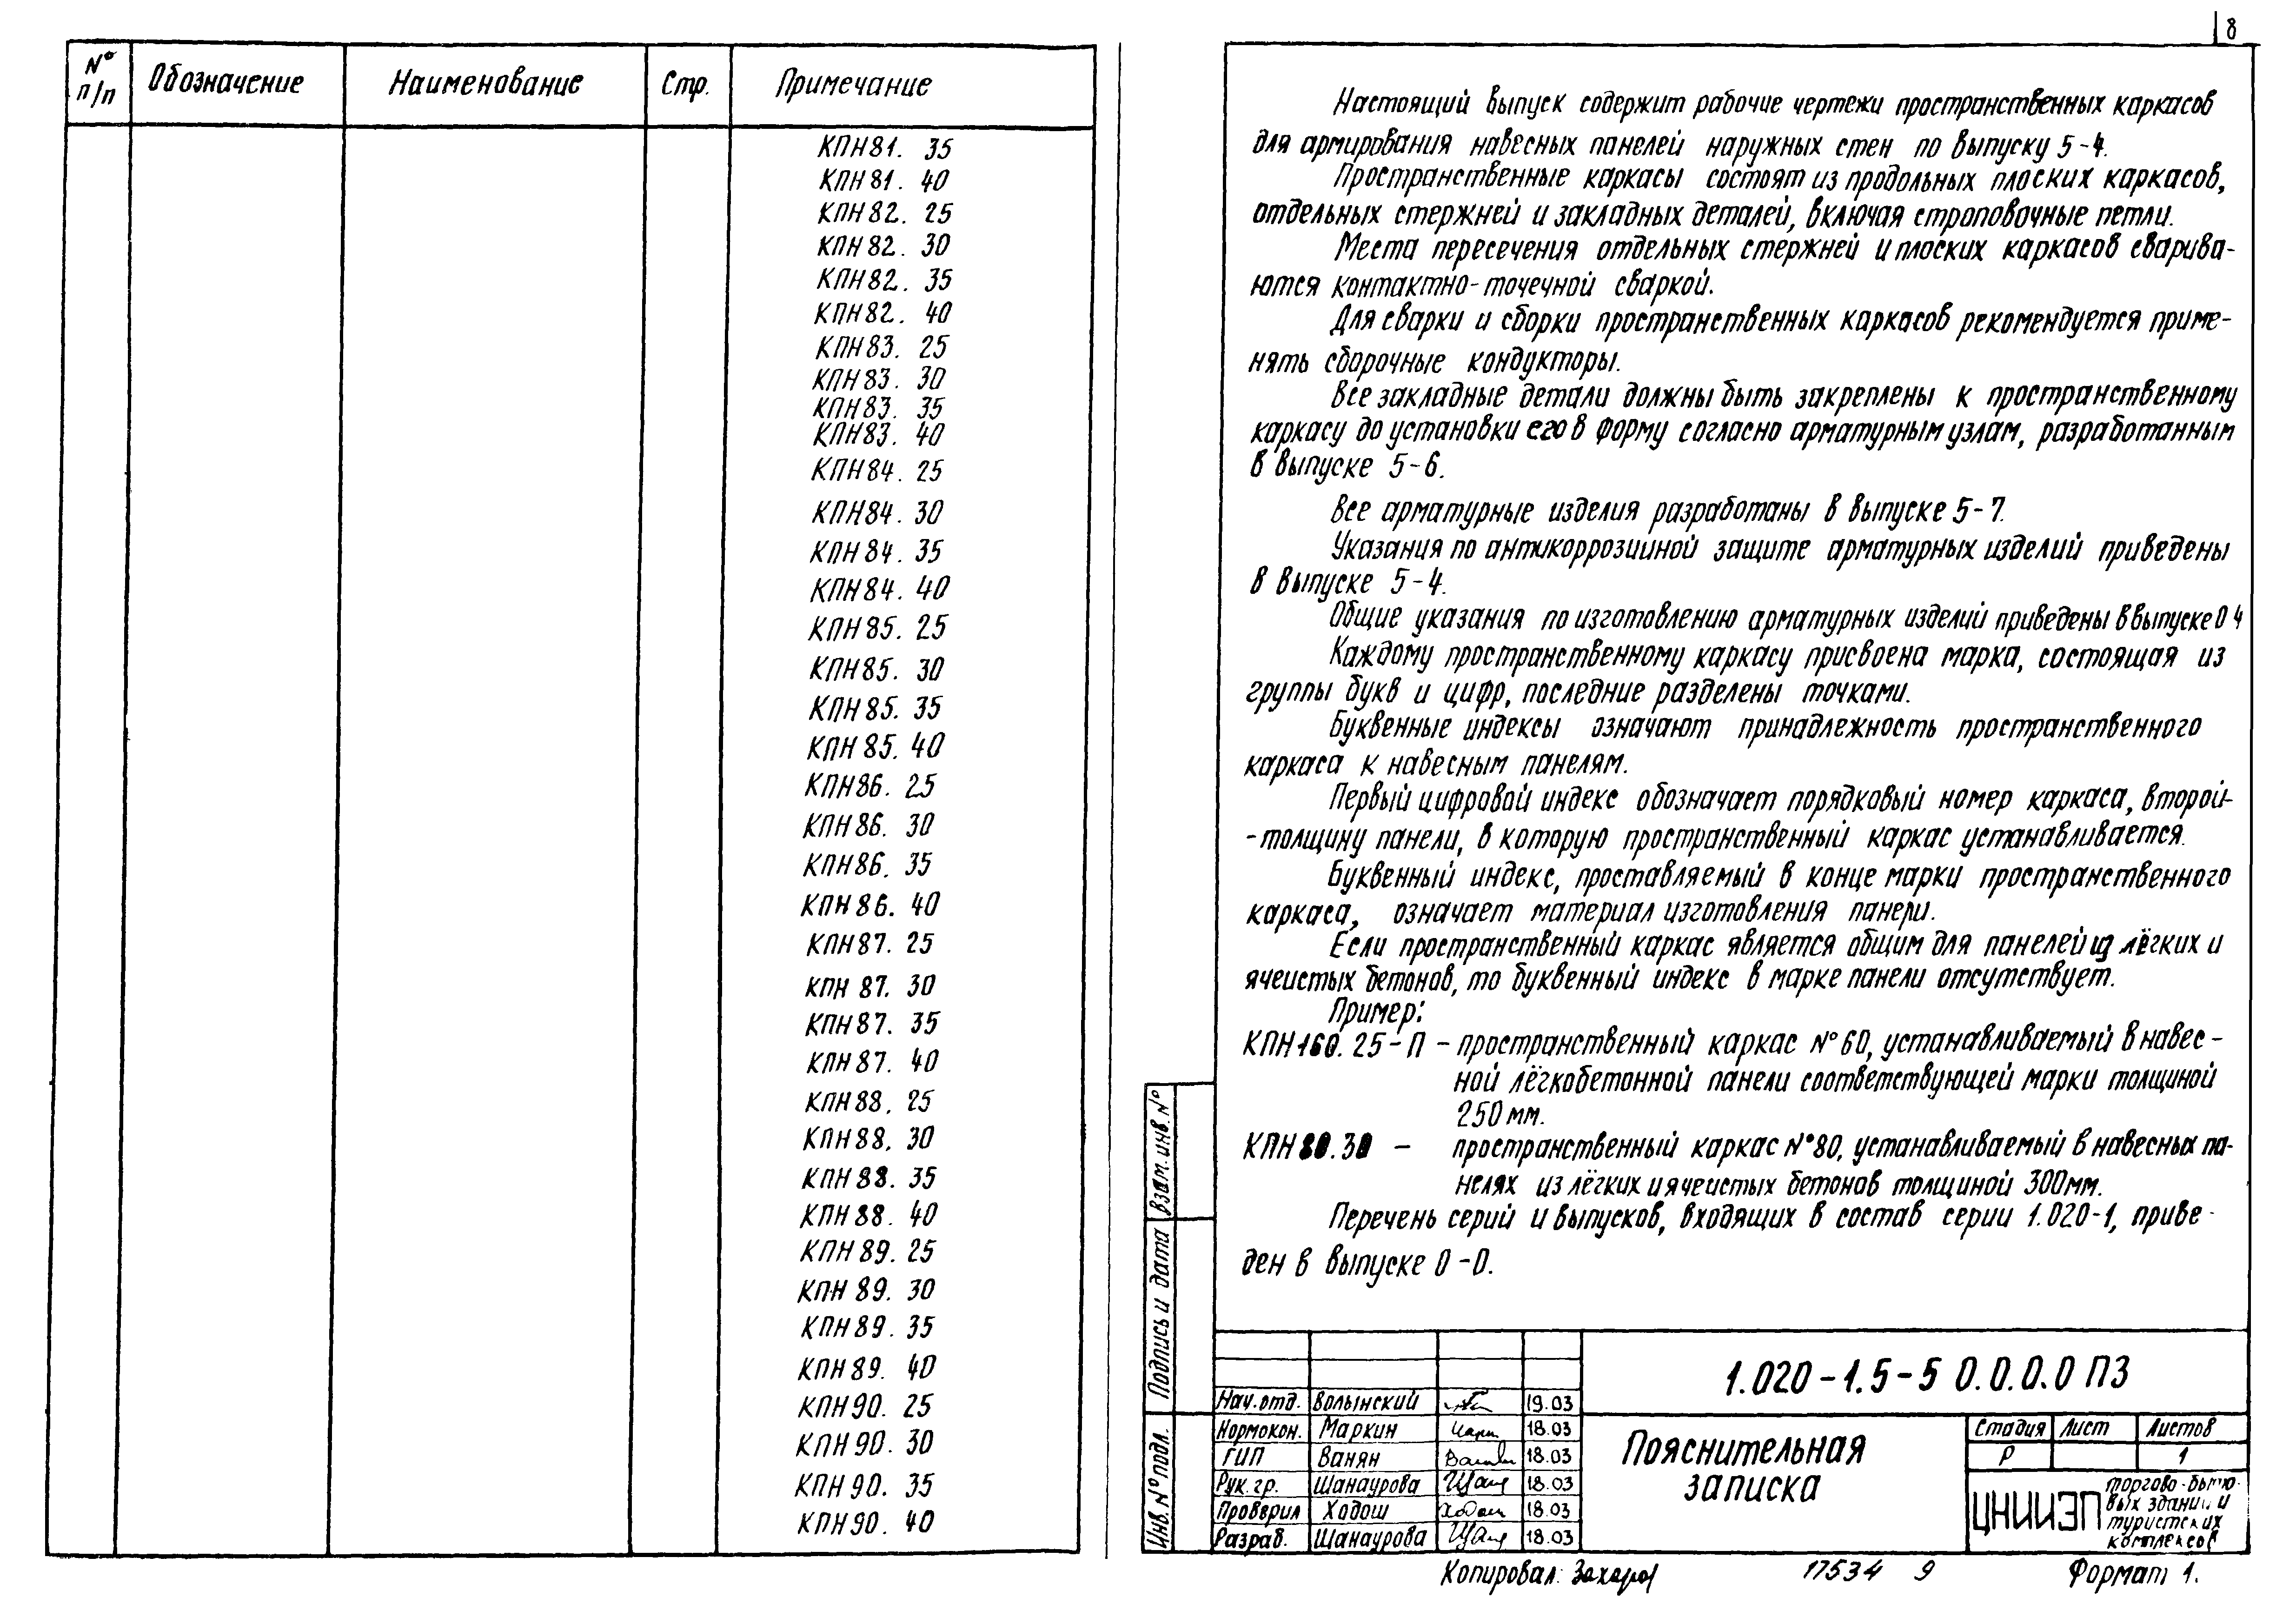 № п/п Обозначение Наименование Стр. Примечание
КПН81. 35
КПН81. 40
КПН82. 25
КПН82. 30
КПН82. 35
КПН82. 40
КПН83. 25
КПН83. 30
КПН83. 35
КПН83. 40
КПН84. 25
КПН84. 30
КПН84. 35
КПН84. 40
КПН85. 25
КПН85. 30
КПН85. 35
КПН85. 40
КПН86. 25
КПН86. 30
КПН86. 35
КПН86. 40
КПН87. 25
КПН 87. 30
КПН87. 35
КПН87. 40
КПН88. 25
КПН88. 30
КПН88. 35
КПН88. 40
КПН89. 25
КПН 89. 30
КПН89. 35
КПН89. 40
КПН90. 25
КПН90. 30
КПН90. 35
КПН90. 40
8
Настоящий выпуск содержит рабочие чертежи пространственных каркасов
для армирования навесных панелей наружных стен по выпуску 5-4.
Пространственные каркасы состоят из продольных плоских каркасов,
отдельных стержней и закладных деталей, включая строповочные петли.
Места пересечения отдельных стержней и плоских каркасов сварива-
ются контактно-точечной сваркой.
Для сварки и сборки пространственных каркасов рекомендуется приме-
нять сборочные кондукторы.
Все закладные детали должны быть закреплены к пространственному
каркасу до установки его в форму согласно арматурным узлам, разработанным
в выпуске 5-6.
Все арматурные изделия разработаны в выпуске 5-7.
Указания по антикоррозийной защите арматурных изделий приведены
в выпуске 5-4.
Общие указания по изготовлению арматурных изделий приведены в выпуске 0 4
Каждому пространственному каркасу присвоена марка, состоящая из
группы букв и цифр, последние разделены точками.
Буквенные индексы означают принадлежность пространственного
каркаса к навесным панелям.
Первый цифровой индекс обозначает порядковый номер каркаса, второй-
-толщину панели, в которую пространственный каркас устанавливается.
Буквенный индекс, проставляемый в конце марки пространственного
каркаса, означает материал изготовления панели.
Если пространственный каркас является общим для панелей из лёгких и
ячеистых бетонов, то буквенный индекс в марке панели отсутствует.
Пример:
КПН160. 25-П - пространственный каркас №60, устанавливаемый в навес-
ной лёгкобетонной панели соответствующей марки толщиной
250 мм.
КПН80.30 - пространственный каркас №80, устанавливаемый в навесных па-
нелях из лёгких и ячеистых бетонов толщиной 300мм.
Перечень серий и выпусков, входящих в состав серии 1.020-1, приве-
ден в выпуске 0-0.
Взам. инв. №
Подпись и дата
Инв. № подл.
1.020-1.5-5 0.0.0.0 ПЗ
Нач.отд. Волынский 19.03
Нормокон. Маркин 18.03
ГИП Ванян 18.03
Рук. гр. Шанаурова 18.03
Проверил Ходош 18.03
Разраб. Шанаурова 18.03
Пояснительная
записка
Стадия Лист Листов
Р 1
ЦНИИЭП
торгово-быто-
вых зданий и
туристских
комплексов
Копировал: Захаров 17534 9 Формат 1.